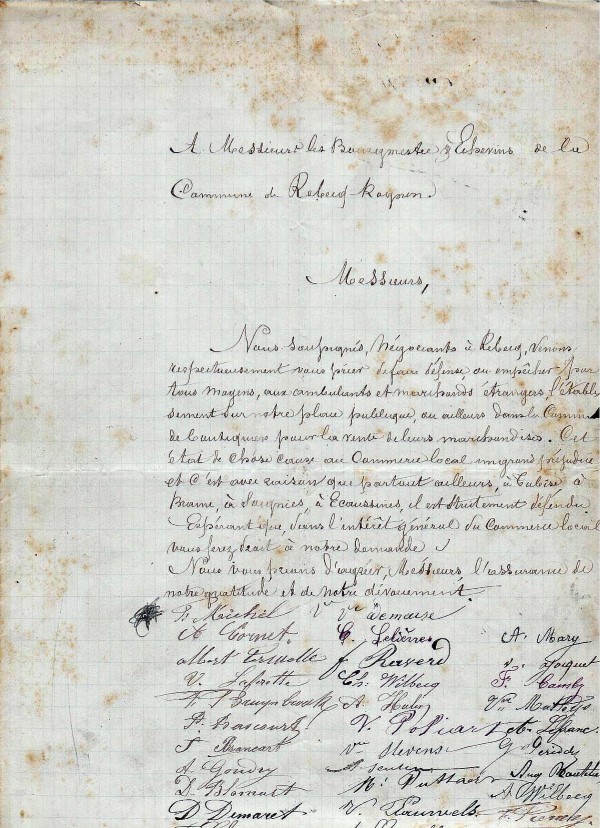 A Messieurs les Bourgmestre & Echevins de la
Commune de Rebecq-Rognon.
Messieurs,
Nous soussignés, Négociants à Rebecq, venons
respectueusement vous prier de faire défense ou empêcher par
tous moyens, aux ambulants et marchands étrangers, l'établis
sement sur notre place publique, ou ailleurs dans la Commune
de boutiques pour la vente de leurs marchandises. Cet
état de chose cause au Commerce local un grand préjudice
et c'est avec raison que partout ailleurs, à Tubize à
Braine, à Soignies, à Ecaussines, il est strictement défendu
Espérant que dans l'intérêt général du Commerce local
vous ferez droit à notre demande
Nous vous prions d'agréer, Messieurs, l'assurance de
notre gratitude et de notre dévouement.
F. Michel Vve Demeuse
Cornet. C. A. Mary
Albert J Raverd
V. Laforette Ch. Wilbecq F. Camby
A Vve
V. Poliart Lefranc.
F. Brancart Vve Stevens G
A Goudry
D Blomart Mce Puttaert Aug
D Demaret V. Pauwels A Wilbecq